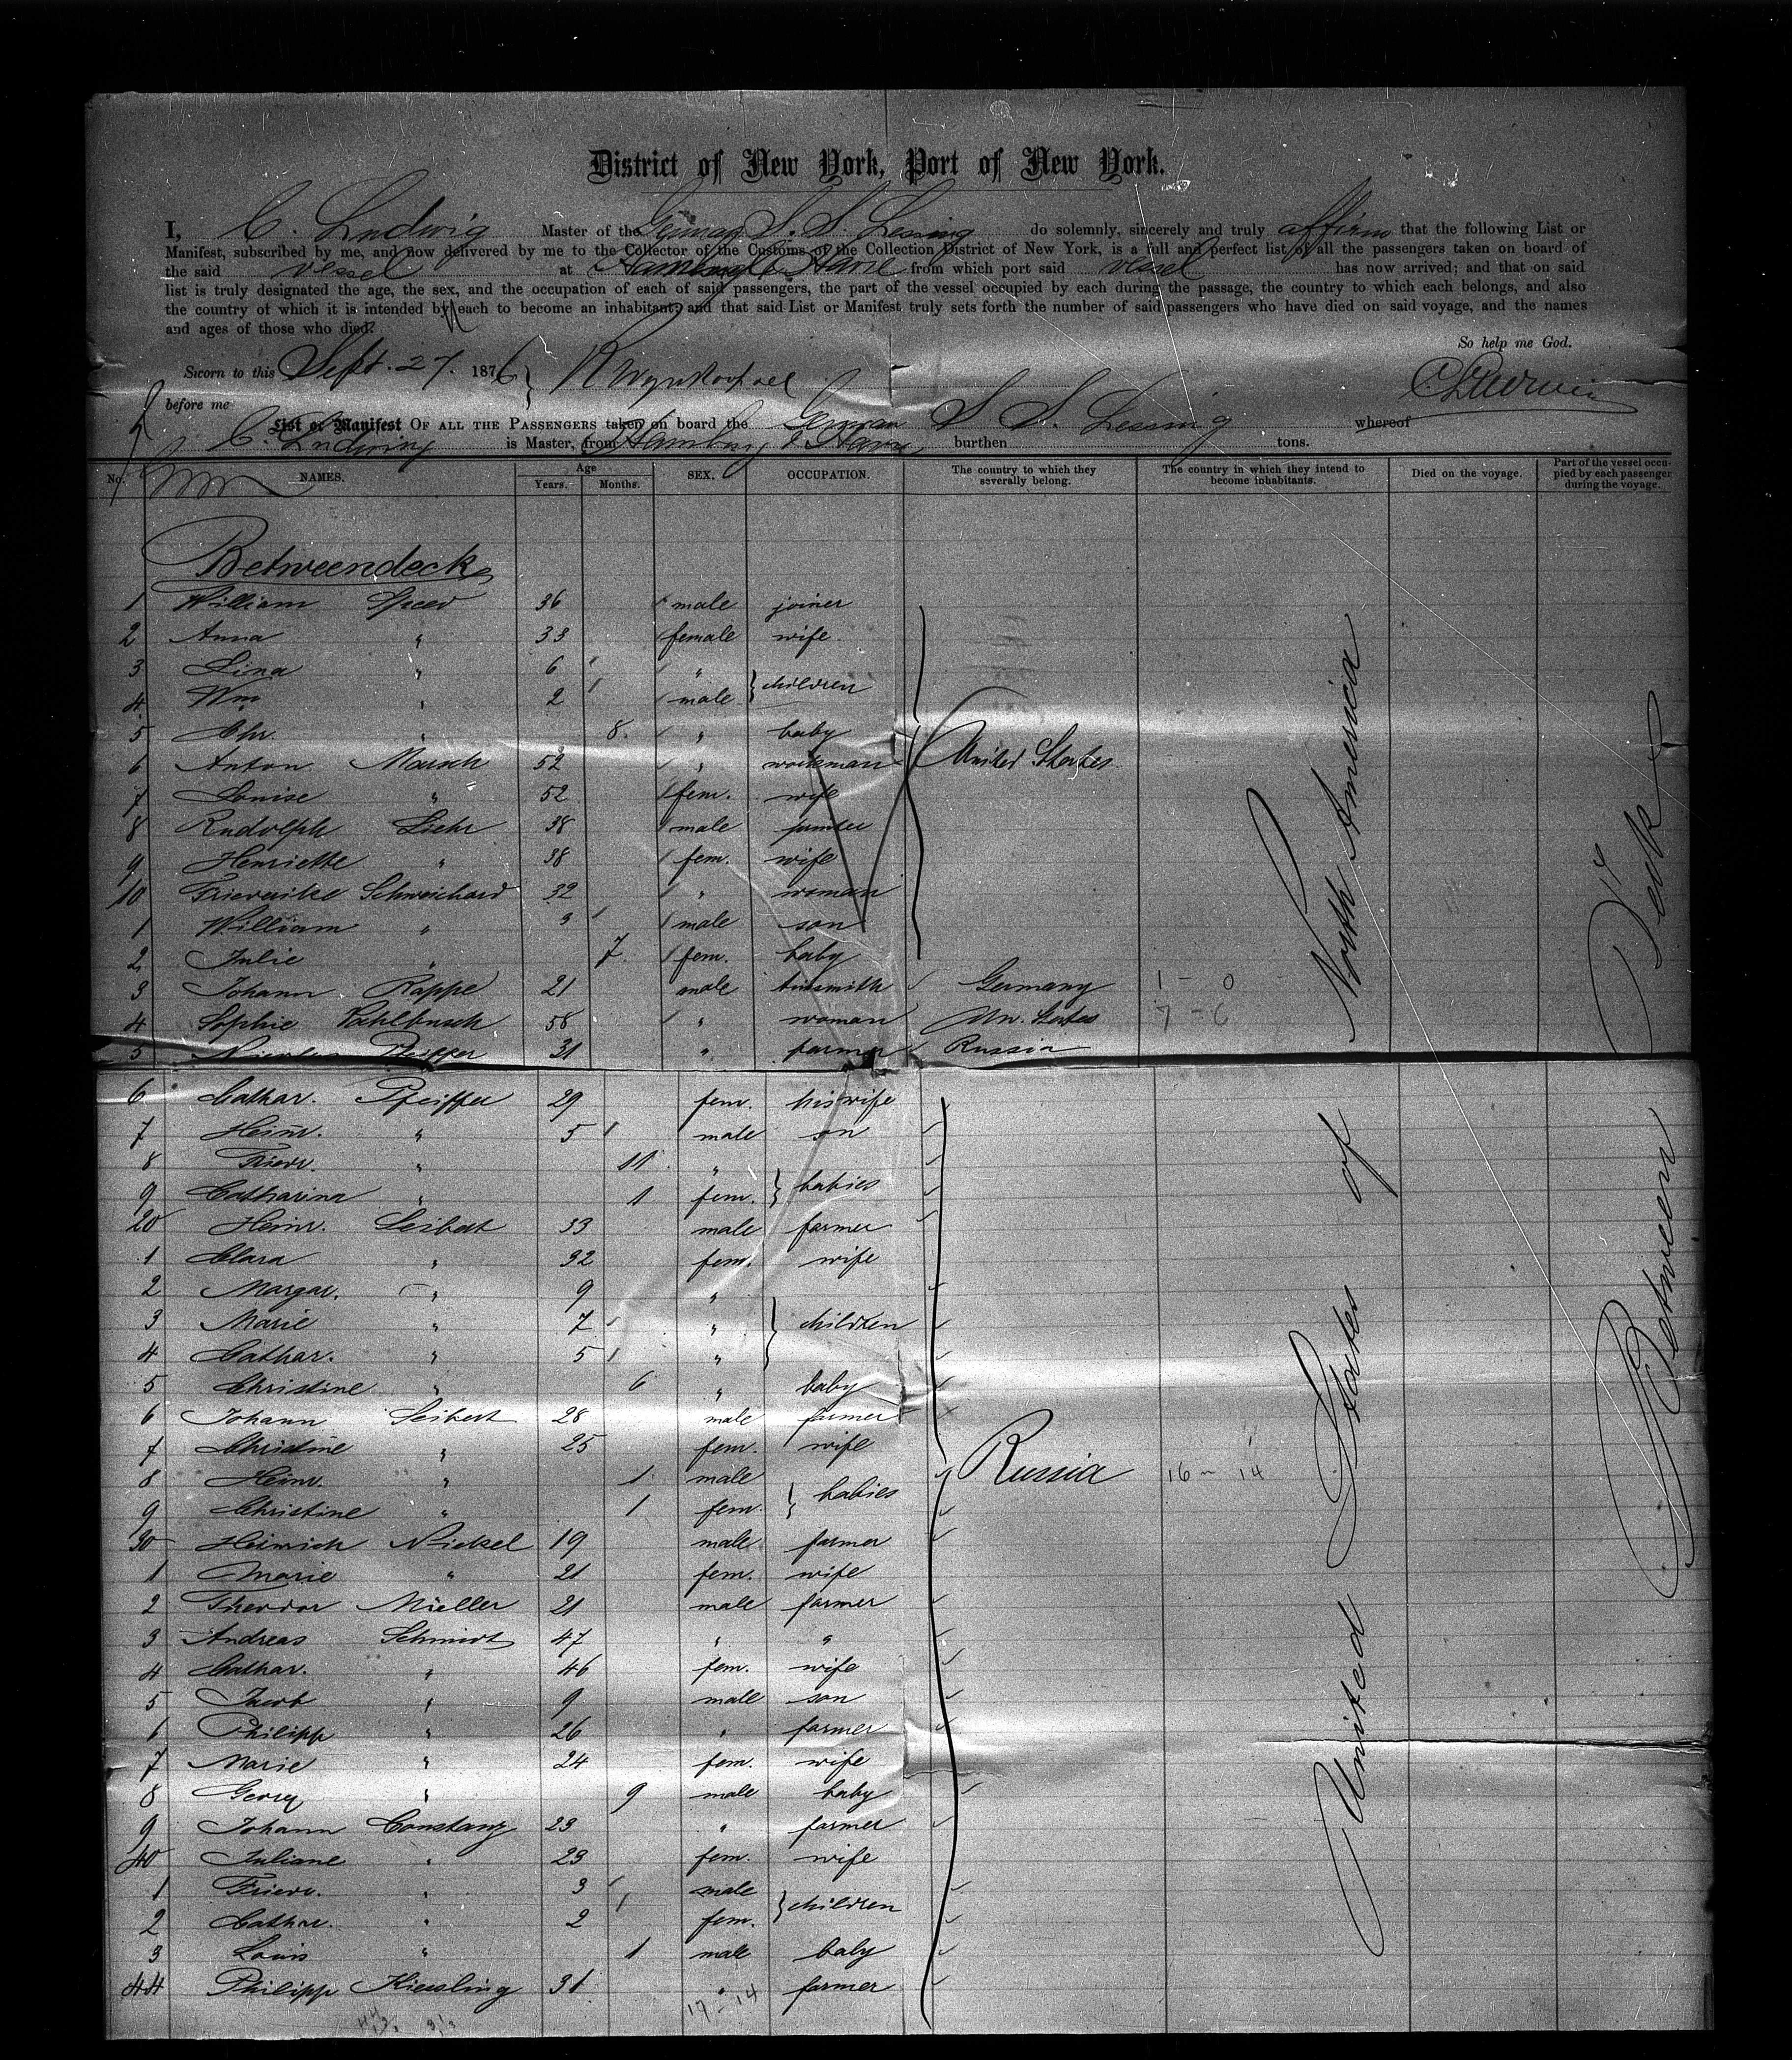 District of New York, Port of New York.
I, C. Ludwig Master of the German S. S. Lessing do solemnly, sincerely and truly affirm that the following List or
Manifest, subscribed by me, and now delivered by me to the Collector of the Customs of the Collection District of New York, is a full and perfect list of all the passengers taken on board of
the said vessel at Hamburg & Havre from which port said vessel has now arrived; and that on said
list is truly designated the age, the sex, and the occupation of each of said passengers, the part of the vessel occupied by each during the passage, the country to which each belongs, and also
the country of which it is intended by each to become an inhabitant; and that said List or Manifest truly sets forth the number of said passengers who have died on said voyage, and the names
and ages of those who died.
So help me God.
Sworn to this Sept. 27. 1876
before me
List or Manifest OF ALL THE PASSENGERS taken on board the German S. S. Lessing whereof
C. Ludwig is Master, from Hamburg & Havre burthen tons.
No. NAMES. Age Years. Months. SEX. OCCUPATION. The country to which they severally belong. The country in which they intend to become inhabitants. Died on the voyage. Part of the vessel occupied by each passenger during the voyage.
Betweendeck
1 William 36 male joiner
2 Anna " 33 female wife
3 Lina " 6 " children
4 Wm " 2 male
5 Chr. " 8. " baby
6 Anton Marsch 52 " workman United States
7 Louise " 52 fem. wife
8 Rudolph Liehr 38 male
9 Henriette " 38 fem. wife
10 Friederike Schweichard 32 " woman
1 William " 3 male son
2 Julie " 7 fem. baby
3 Johann Rappe 21 male tinsmith Germany 1 - 0
4 Sophie Vahlbusch 58 " woman Un. States 7 - 6
5 31 " farmer Russia
6 Cathar. Pfeiffer 29 fem. his wife
7 Heinr. " 5 male son
8 Friedr. " 11 " babies
9 Catharina " 1 fem.
20 Heinr. Seibert 33 male farmer
1 Clara " 32 fem. wife
2 Margar. " 9 "
3 Marie " 7 " children
4 Cathar. " 5 "
5 Christine " 6 " baby
6 Johann Seibert 28 male farmer
7 Christine " 25 fem. wife
8 Heinr. " 1 male babies Russia 16 - 14
9 Christine " 1 fem.
30 Heinrich Nickel 19 male farmer
1 Marie " 21 fem. wife
2 Theodor Mueller 21 male farmer
3 Andreas Schmidt 47 " "
4 Cathar. " 46 fem. wife
5 Jacob " 9 male son
6 Philipp " 26 " farmer
7 Marie " 24 fem. wife
8 Georg " 9 male baby
9 Johann Constanz 23 " farmer
40 Juliane " 23 fem. wife
1 Friedr. " 3 male children
2 Cathar. " 2 fem.
3 Louis " 1 male baby
44 Philipp Kiessling 31 " farmer
17 - 14
United States of North America
Between Deck